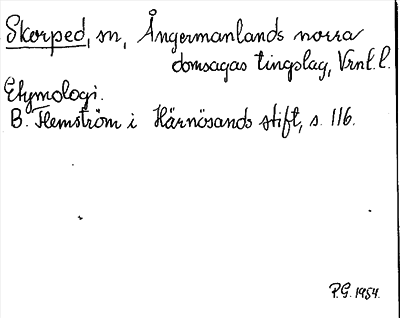 Skorped, sn, Ångermanlands norra
domsagas tingslag, Vrnl. l.
Etymologi.
B. Flemström i Härnösands stift, s. 116.
P.G. 1954.